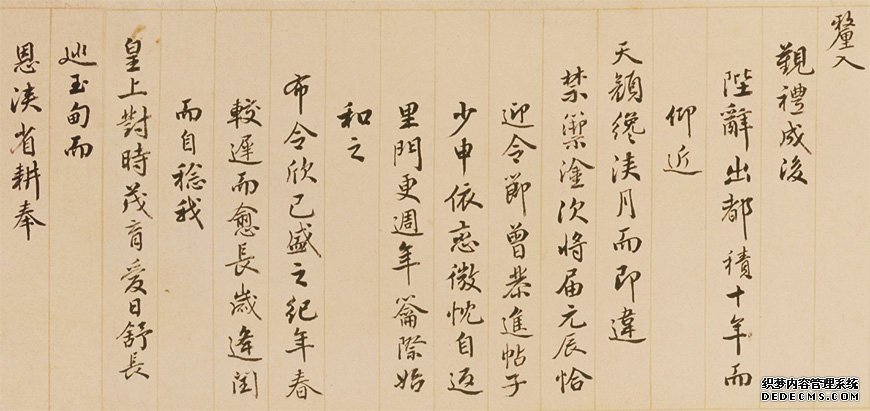 釐入
覲禮成後
陛辭出都積十年而
仰近
天顏纔浹月而即違
禁籞塗次將屆元辰恰
迎令節曾恭進帖子
少申依戀微忱自返
里門更週年籥際始
和之
布令欣已盛之紀年春
較遲而愈長歲逢閏
而自稔我
皇上對時茂育愛日舒長
巡玉甸而
恩浹省耕奉
织梦内容管理系统
DEDECMS.COM